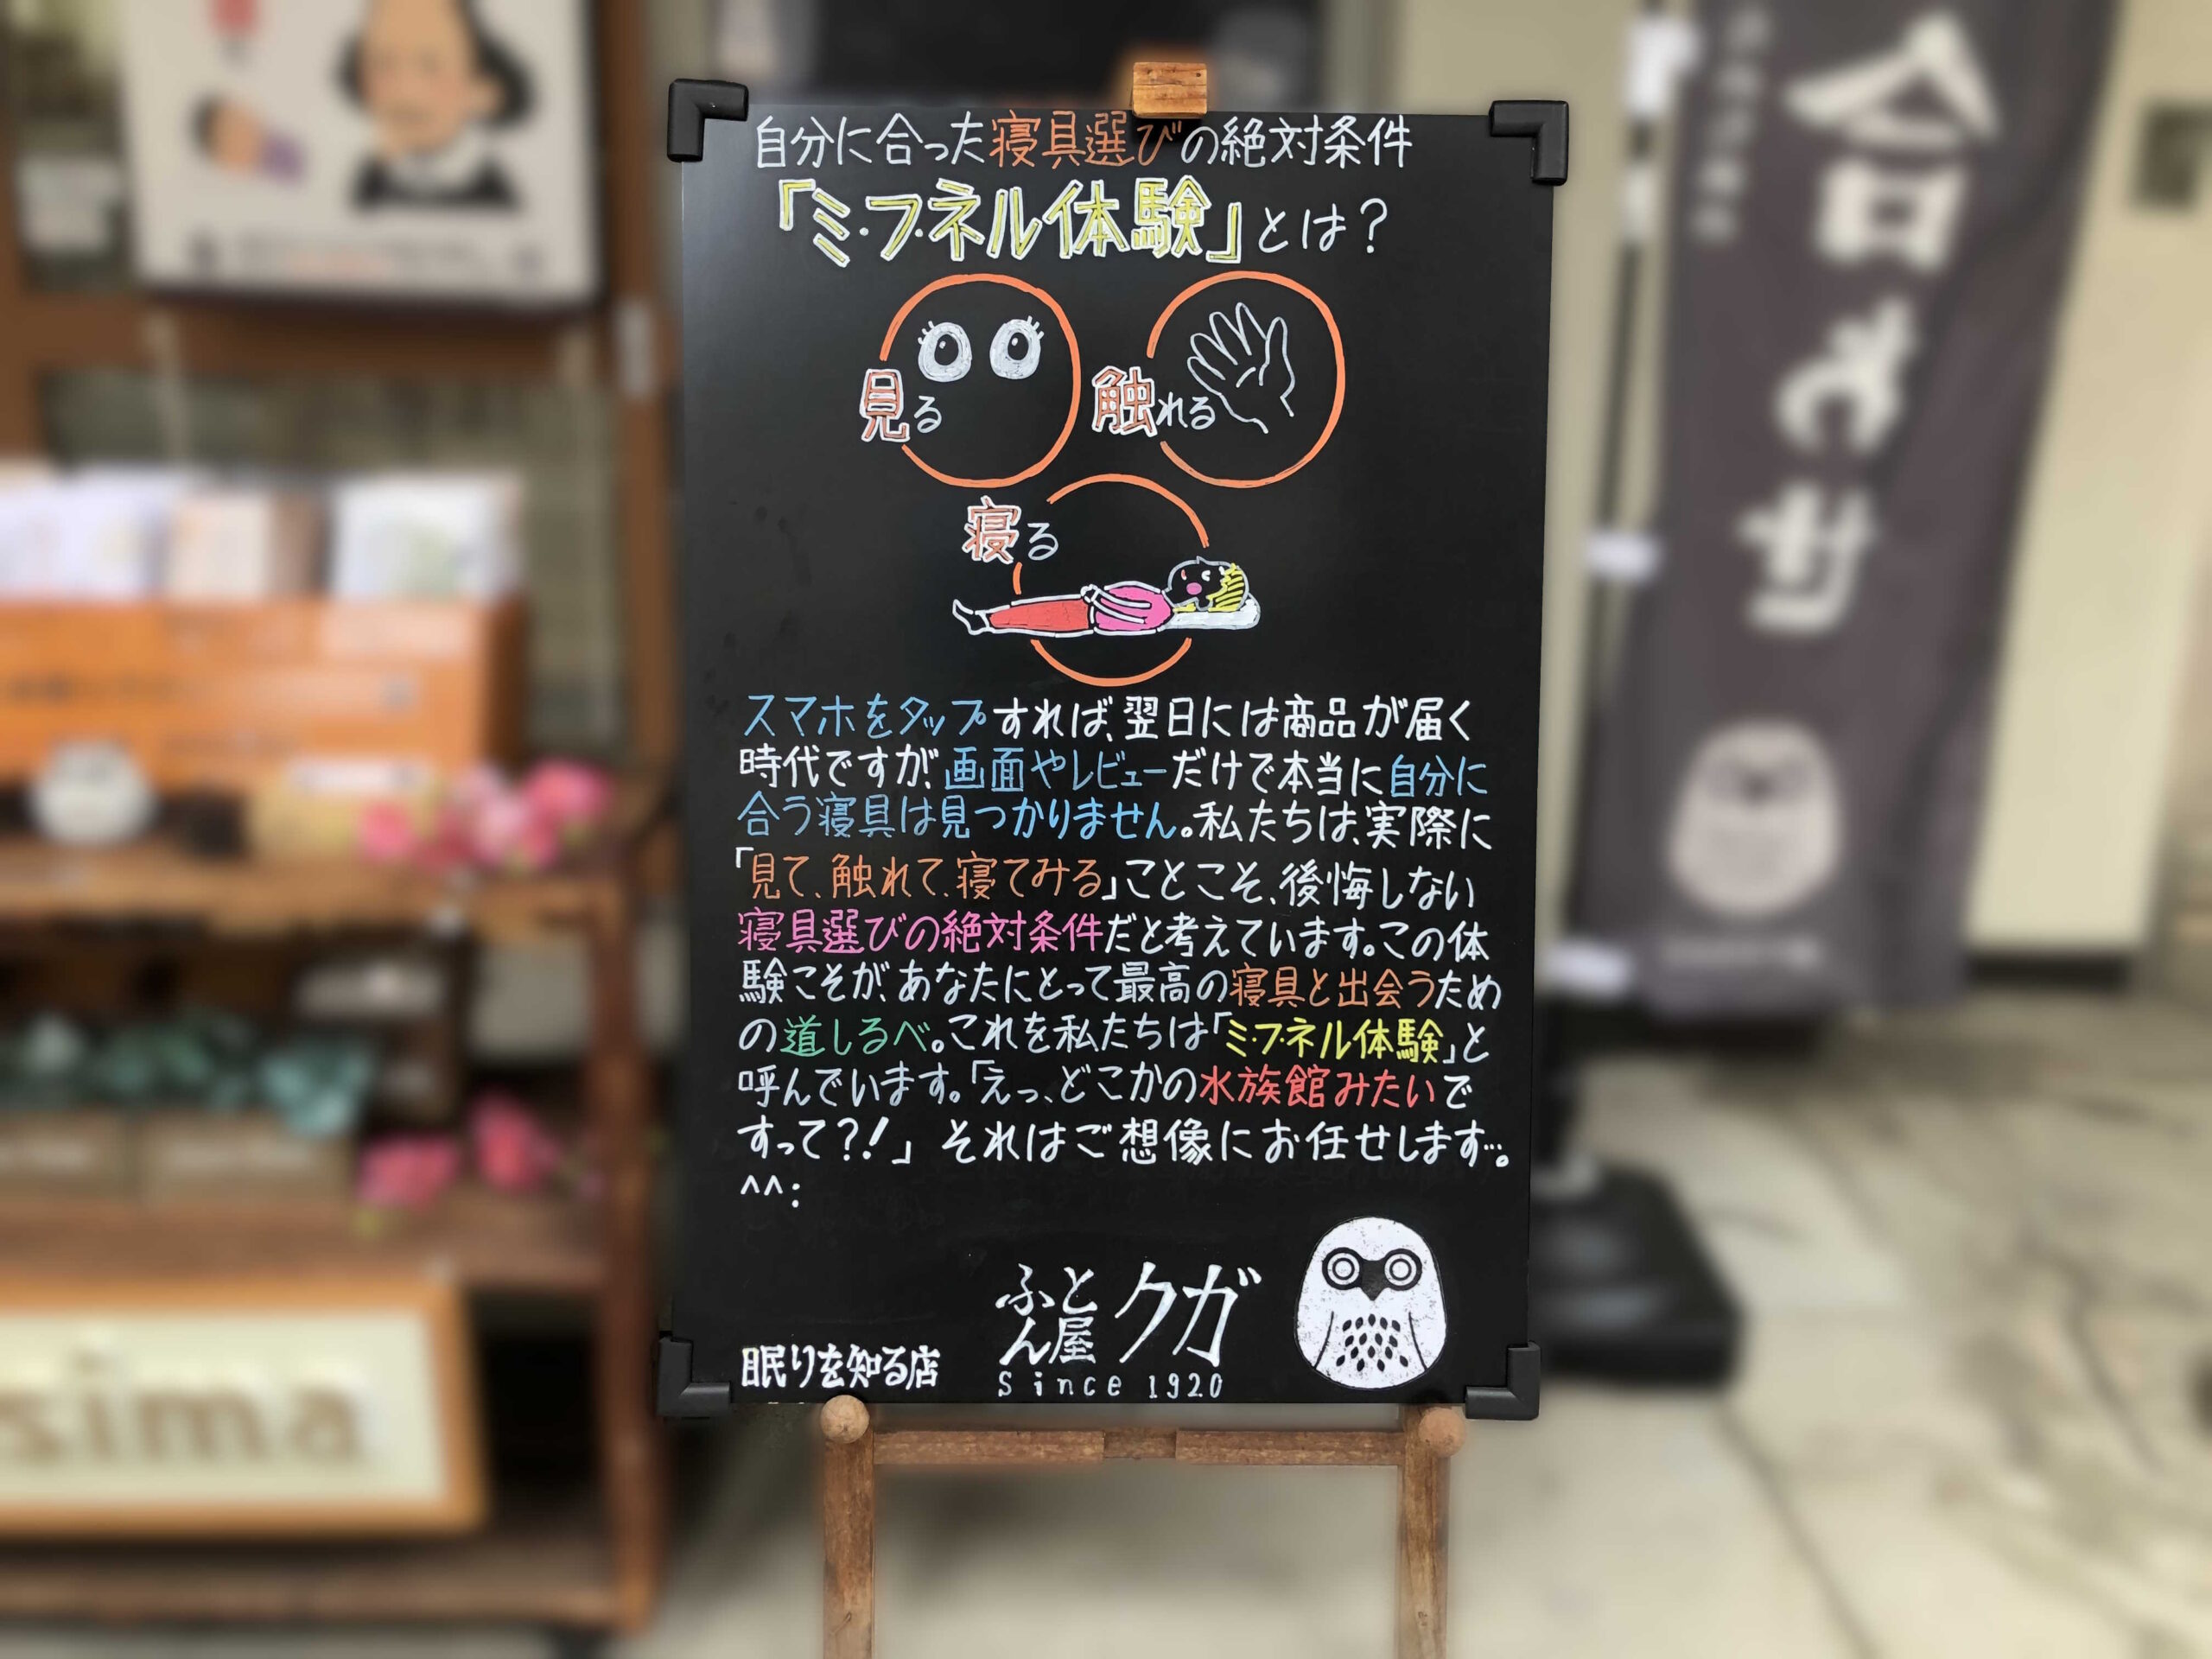 自分に合った寝具選びの絶対条件
「ミ・フ・ネル体験」とは?
見る
触れる
寝る
スマホをタップすれば、翌日には商品が届く
時代ですが、画面やレビューだけで本当に自分に
合う寝具は見つかりません。私たちは、実際に
「見て、触れて、寝てみる」ことこそ、後悔しない
寝具選びの絶対条件だと考えています。この体
験こそが、あなたにとって最高の寝具と出会うため
の道しるべ。これを私たちは「ミ・フ・ネル体験」と
呼んでいます。「えっ、どこかの水族館みたいで
すって?!」それはご想像にお任せします…。
^^;
眠りを知る店
ふとん屋クガ
Since 1920
合わせ
sima